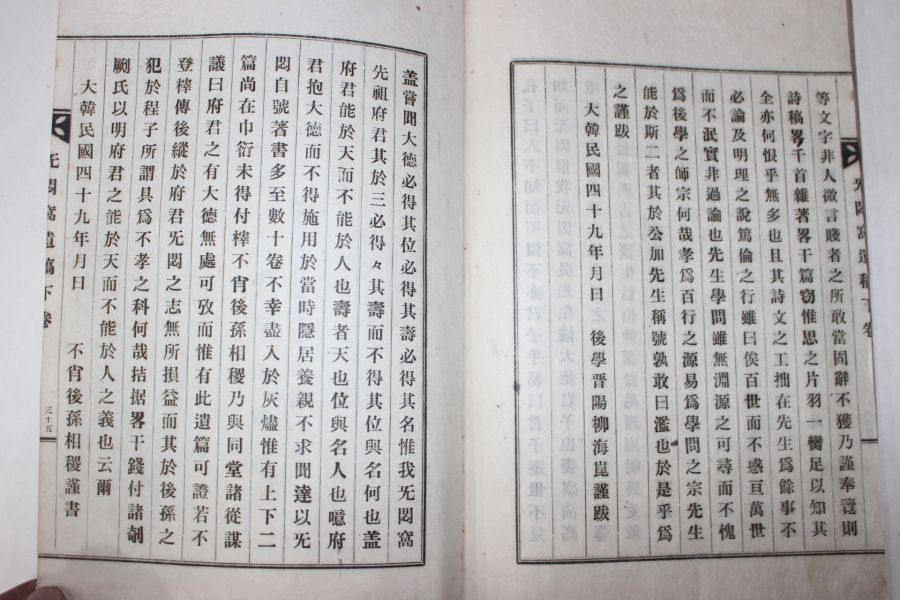 等文字非人微言賤者之所敢當固辭不獲乃謹奉覽則
詩稿畧千首雜著畧干篇窃惟思之片羽一臠足以知其
全亦何恨乎無多也且其詩文之工拙在先生爲餘事不
必論及明理之說篤倫之行雖曰俟百世而不惑亘萬世
而不泯實非過論也先生學問雖無淵源之可尋而不愧
爲後學之師宗何哉孝爲百行之源易爲學問之宗先生
能於斯二者其於公加先生稱號孰敢曰濫也於是乎爲
之謹跋
大韓民國四十九年月日 後學晋陽柳海崑謹跋
无悶窩遺稿下卷
蓋嘗聞大德必得其位必得其壽必得其名惟我旡悶窩
先祖府君其於三必得々其壽而不得其位與名何也蓋
府君能於天而不能於人也壽者天也位與名人也噫府
君抱大德而不得施用於當時隱居養親不求聞達以旡
悶自號著書多至數十卷不幸盡入於灰燼惟有上下二
篇尚在巾衍未得付榟不肖後孫相稷乃與同堂諸從謀
議曰府君之有大德無處可攷而惟有此遺篇可證若不
登榟傳後縱於府君旡悶之志無所損益而其於後孫之
犯於程子所謂具爲不孝之科何哉拮据畧干錢付諸剞
劂氏以明府君之能於天而不能於人之義也云爾
大韓民國四十九年月日 不肖後孫相稷謹書
旡悶窩遺稿下卷
三十五